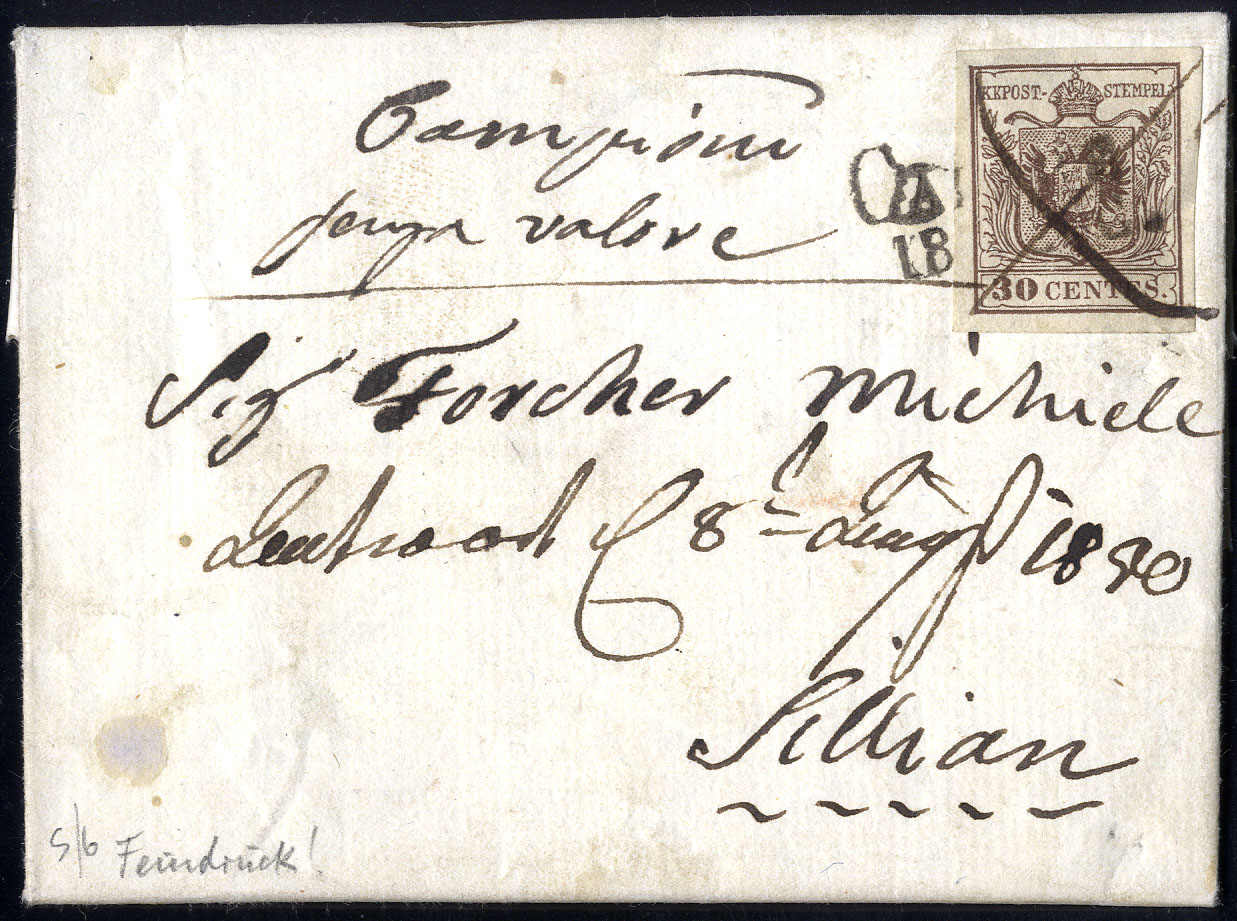 Campioni
senza valore
KKPOST-STEMPEL
30 CENTES.
Sig Forcher Michiele
8 1850
Sillian
5/6 Feindruck!